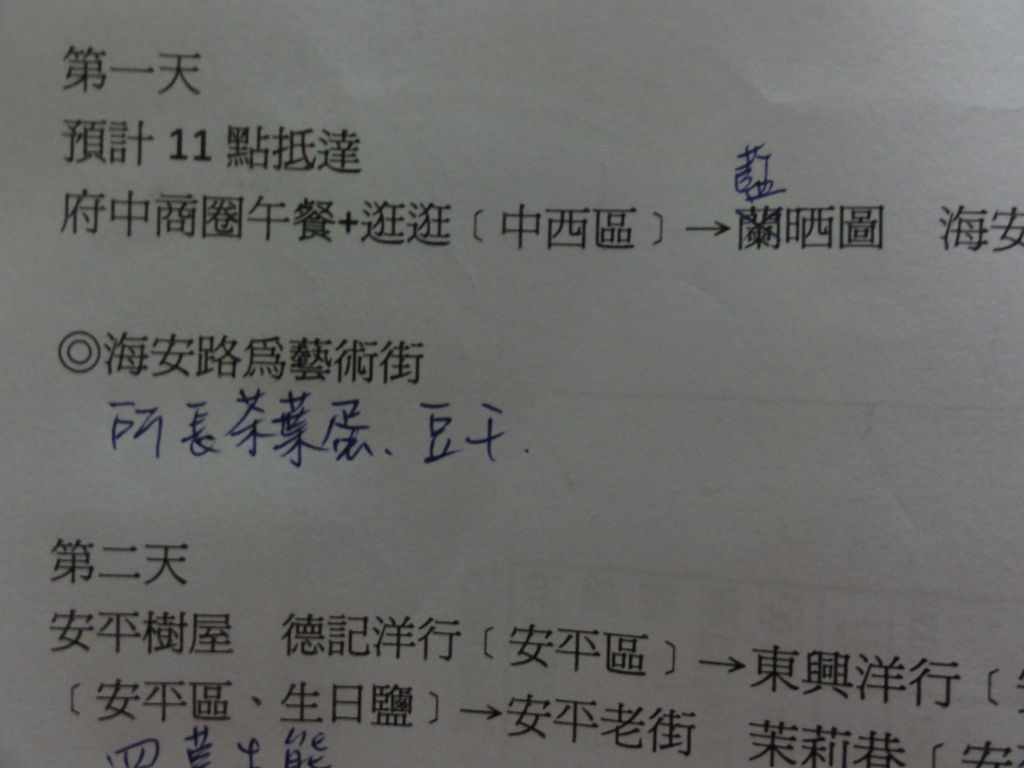 第一天
預計 11 點抵達
藍
府中商圈午餐+逛逛﹝中西區﹞→蘭晒圖 海安
◎海安路為藝術街
所長茶葉蛋、豆干.
第二天
安平樹屋 德記洋行﹝安平區﹞→東興洋行﹝
﹝安平區、生日鹽﹞→安平老街 茉莉巷﹝安
四草